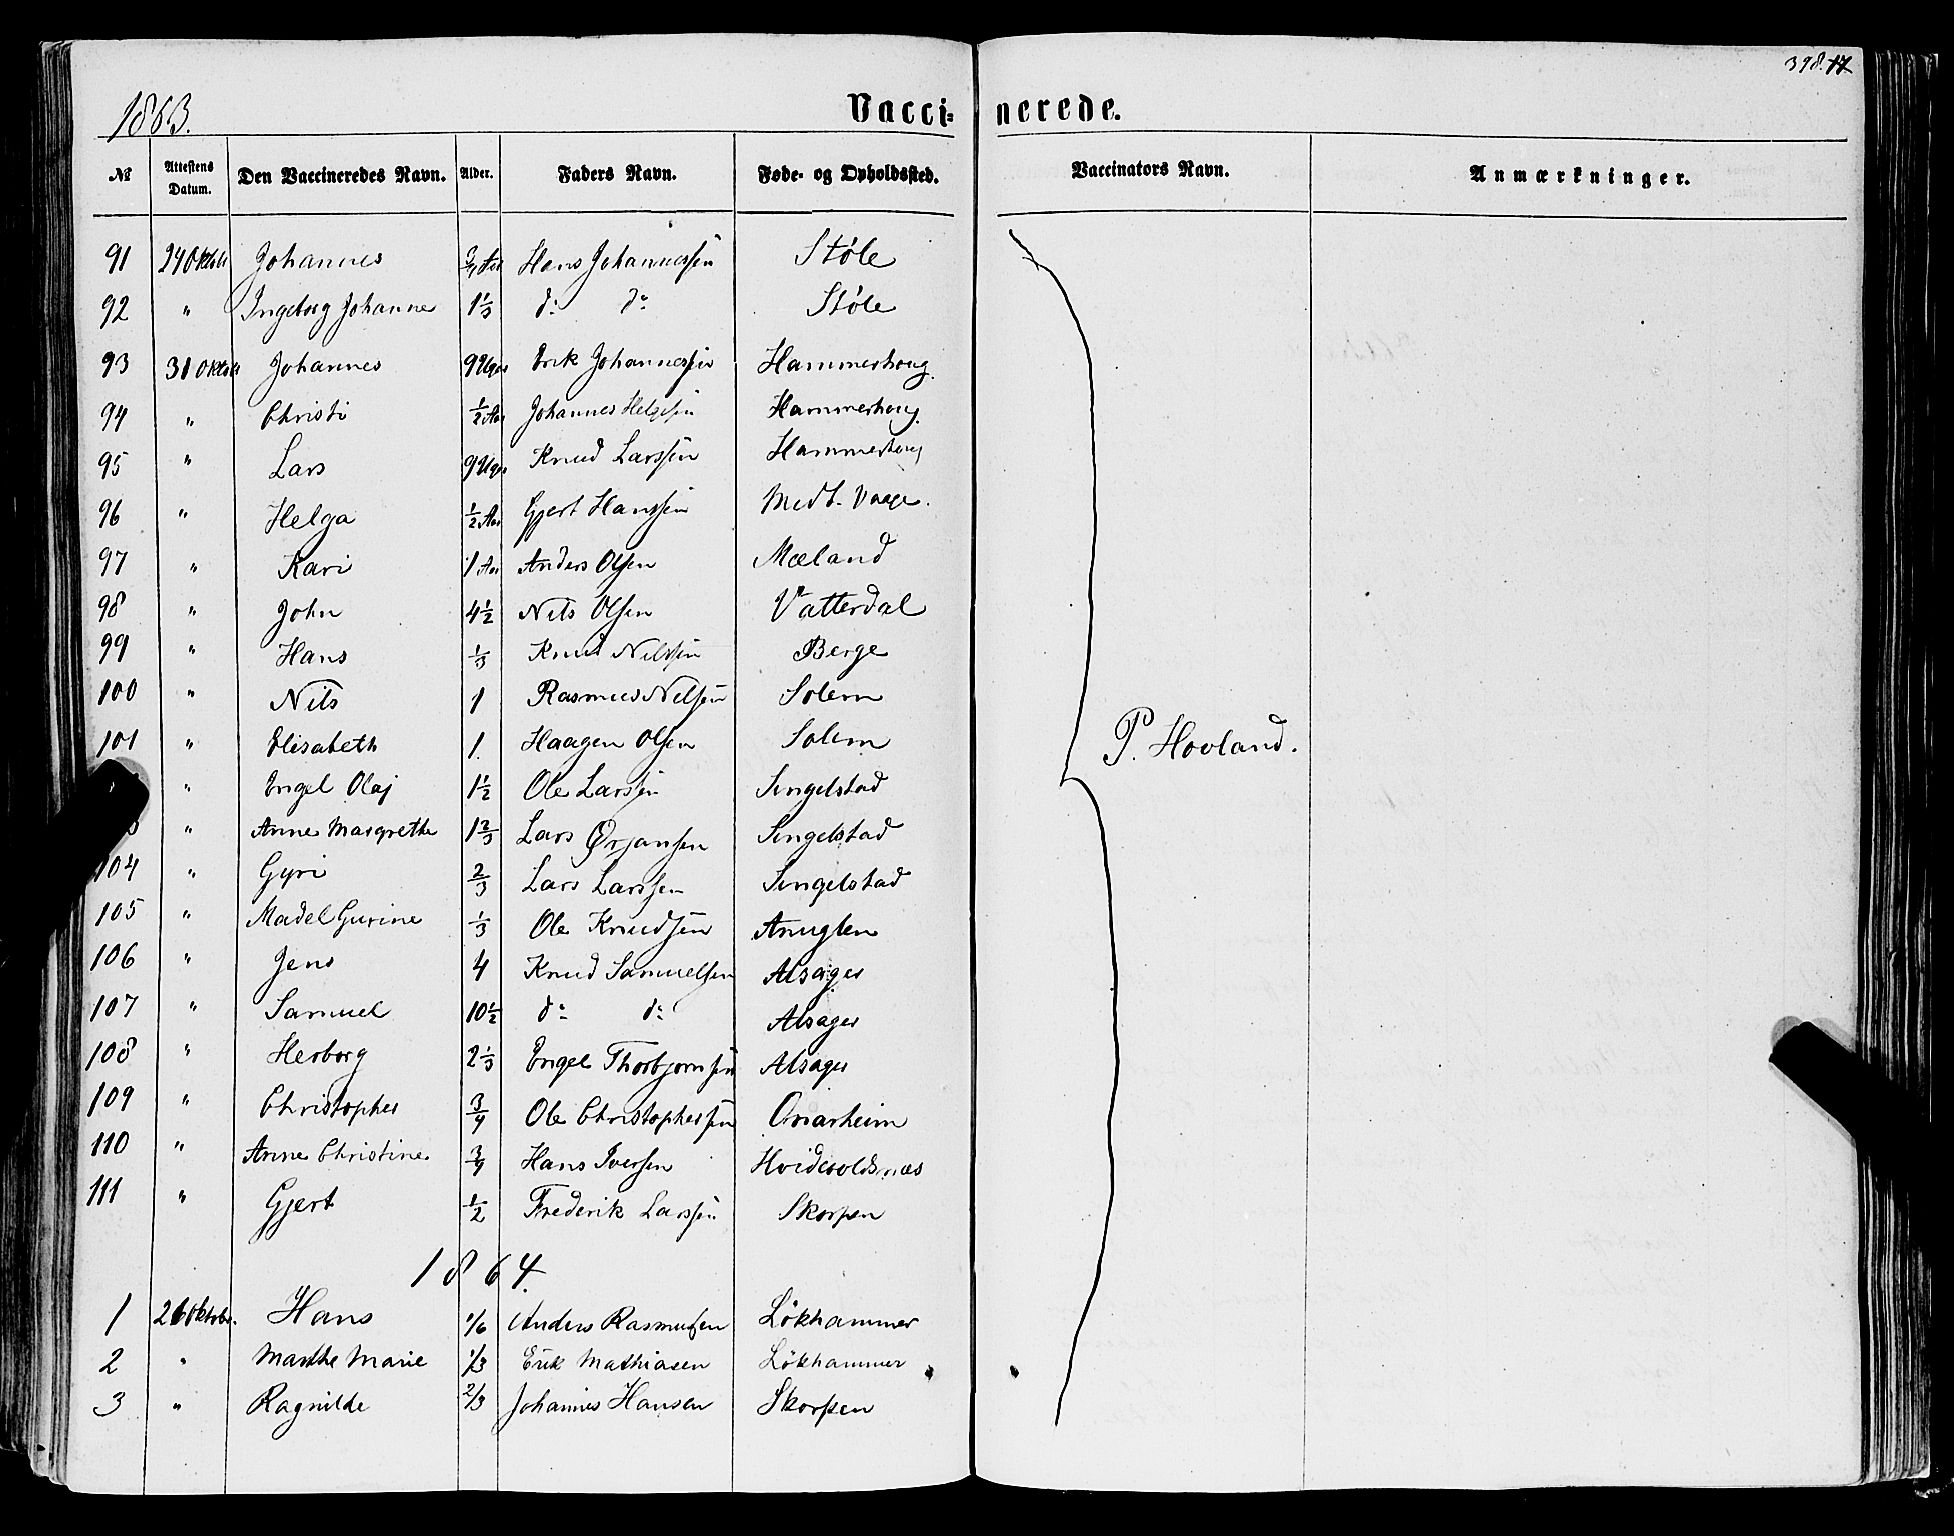 398. 17
1863.
Vacci- nerede.
No Attestens Datum. Den Vaccineredes Navn. Alder. Faders Navn. Føde- og Opholdssted. Vaccinators Navn. Anmærkninger.
91 24 Oktob Johannes 3/4 Aar Hans Johannessen Støle
92 " Ingeborg Johanne 1 1/3 do do Støle
93 31 Oktob Johannes 9 Uger Erik Johannessen Hammerhoug
94 " Christi 1/2 Aar Johannes Helgesen Hammerhoug
95 " Lars 9 Uger Knud Larssen Hammerhoug
96 " Helga 1/2 Aar Gjert Hanssen Medt. Vaage.
97 " Kari 1 Aar Anders Olsen Mæland
98 " John 4 1/2 Nils Olsen Vatterdal
99 " Hans 1/3 Knud Nilssen Berge
100 " Nils 1 Rasmus Nilsen Solem
101 " Elisabeth 1. Haagen Olsen Solem P. Hovland.
" Engel Olaj 1 1/2 Ole Larsen Singelstad
3 " Anne Margrethe 1 2/3 Lars Ørjansen Singelstad
104 " Gyri 2/3 Lars Larssen Singelstad
105 " Madel Gurine 1/3 Ole Knudsen Anuglen
106 " Jens 4 Knud Samuelsen Alsager
107 " Samuel 10 1/2 do do Alsager
108 " Herborg 2 1/3 Engel Thorbjørnsen Alsager
109 " Christopher 3/4 Ole Christophersen Onarheim
110 " Anne Christine 3/4 Hans Iversen Hvidevoldsnæs
111 " Gjert 1/2 Frederik Larssen Skorpen
1864.
1 26 Oktobr. Hans 1/6 Anders Rasmusen Lökhammer
2 " Marthe Marie 1/3 Erik Mathiasen Lökhammer
3 " Ragnilde 2/3 Johannes Hansen Skorpen